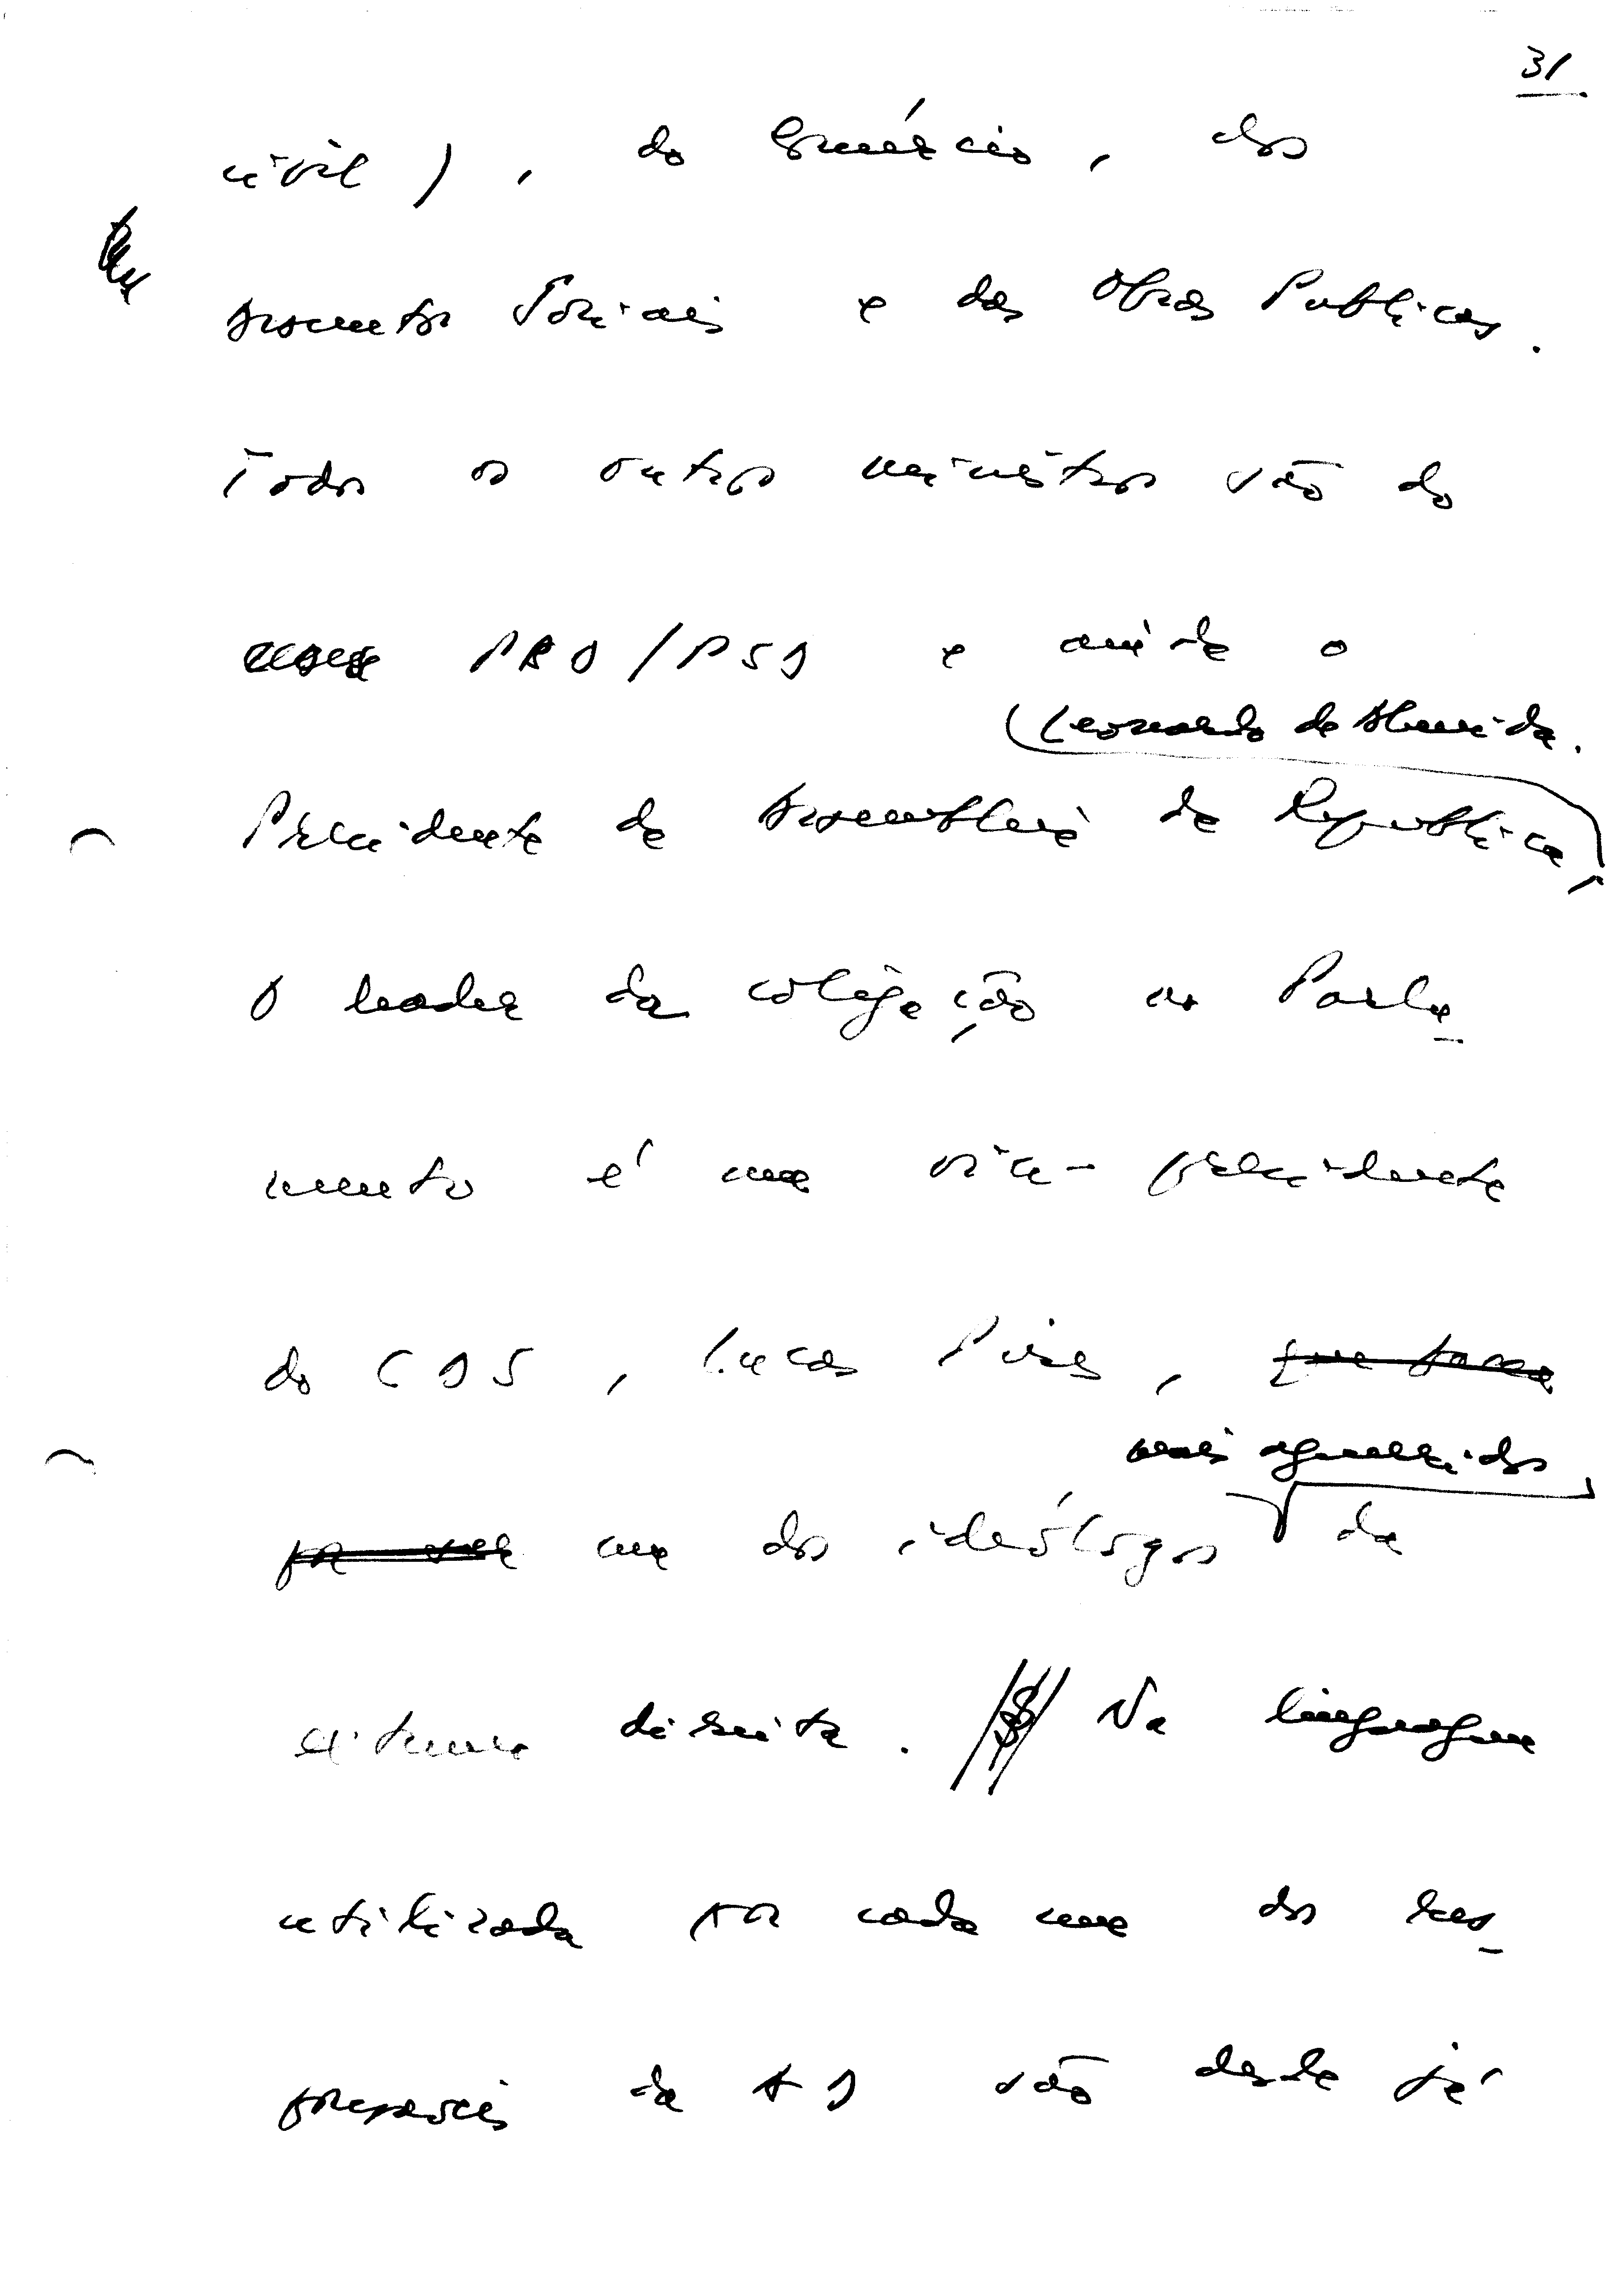 31
civil), do Comércio, dos
Assuntos Sociais e das Obras Publicas.
Todos os outros ministros são do
PPD/PSD e ainda o
Leonardo de Almeida.
Presidente da Assembleia da Republica,
O leader da coligação no Parla-
mento é um vice-presidente
do CDS, Lucas Pires,
mais aguerridos
um dos ideólogos da
extrema direita. Na linguagem
utilizada por cada um dos res-
ponsáveis da AD são desde já